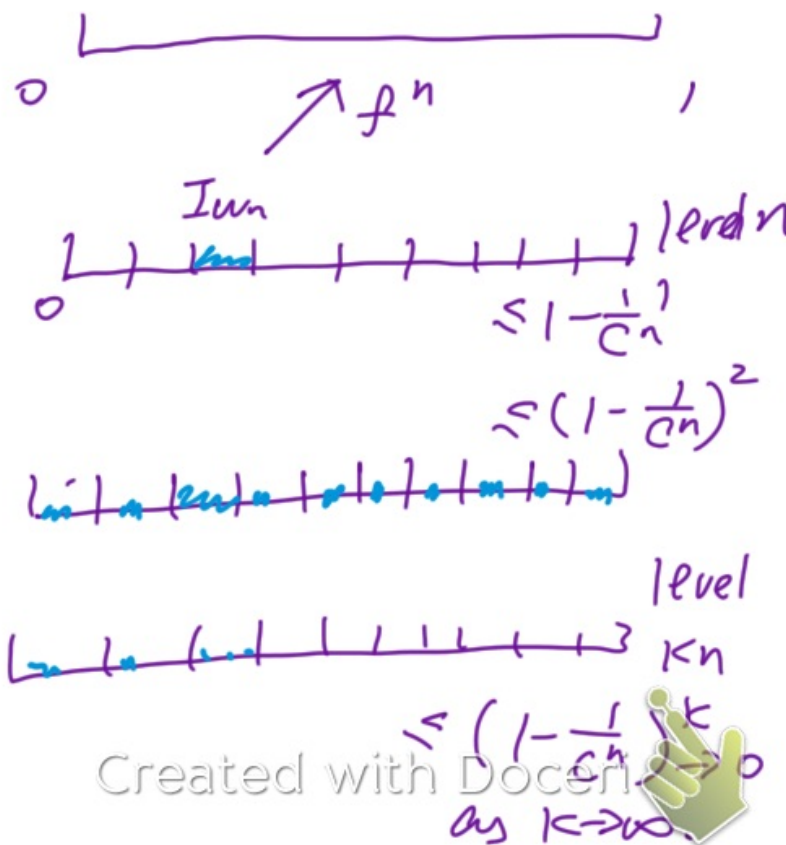 0 1
fⁿ
Iwₙ
level n
0 1
≤ 1 - 1/Cⁿ
≤ (1 - 1/Cⁿ)²
level
Kn
≤ (1 - 1/Cⁿ)ᵏ → 0
as K→∞.
Created with Doceri